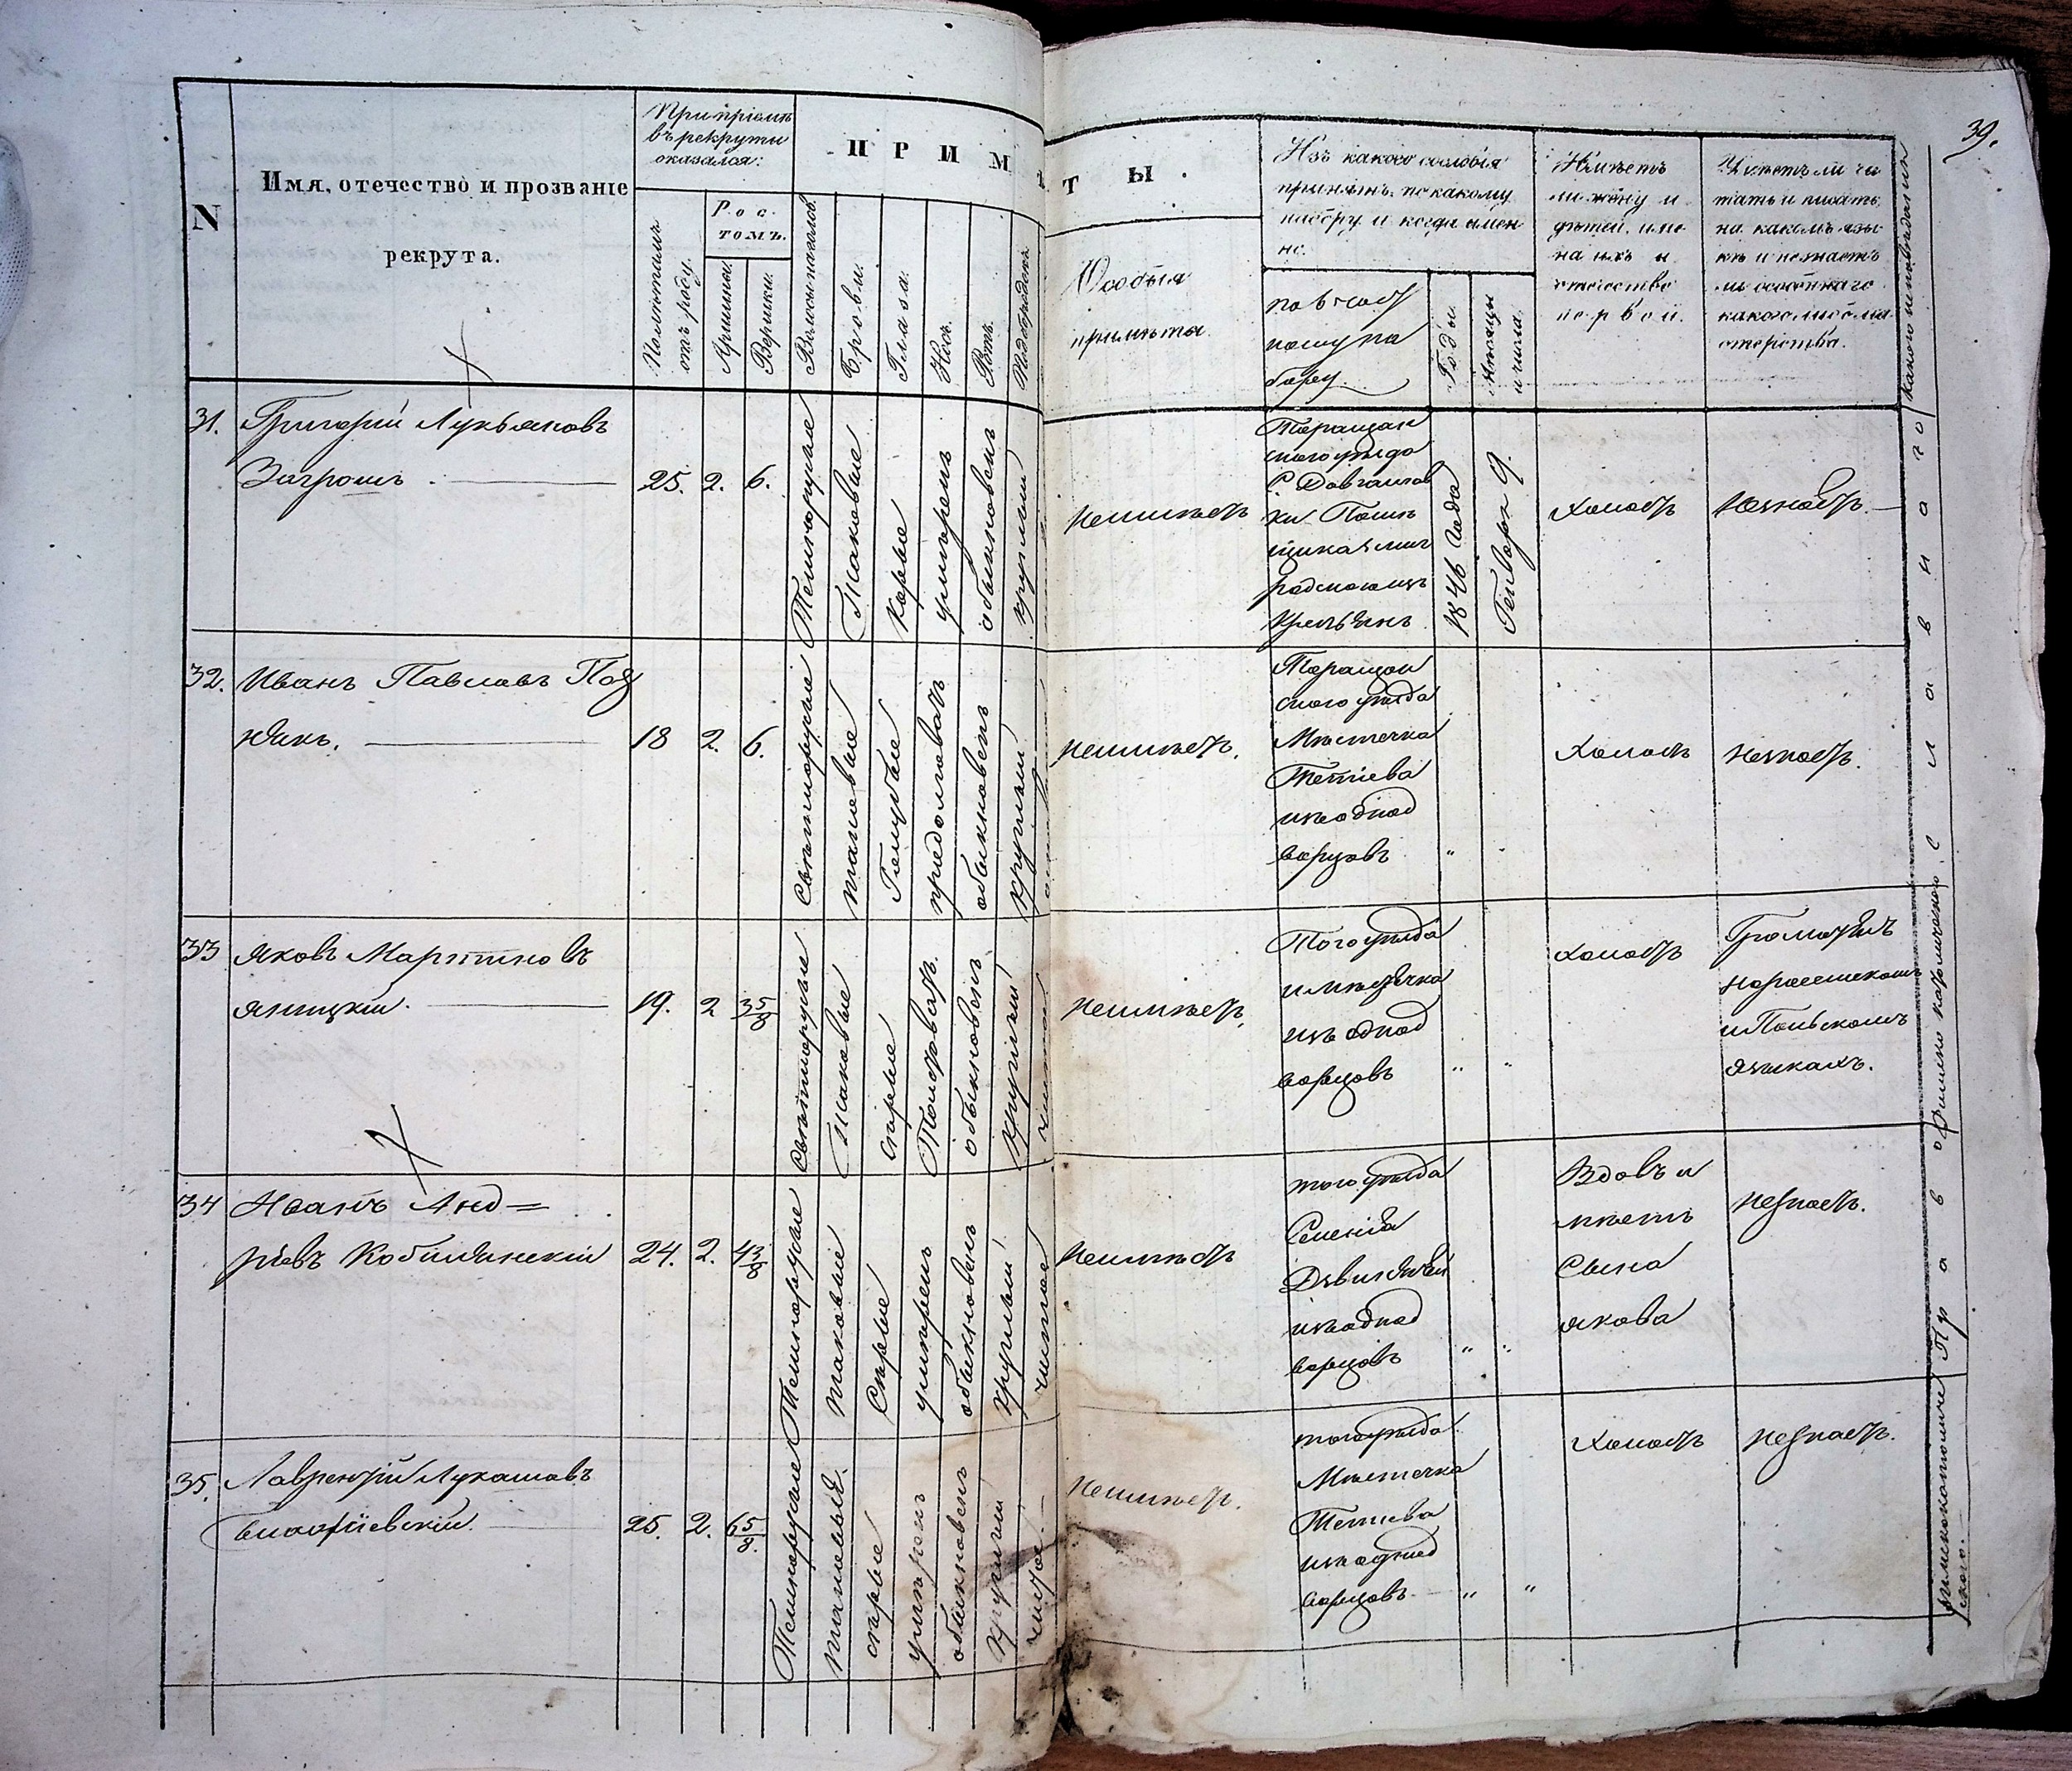 39.
N
Имя, отечество и прозваніе
рекрута.
При пріемѣ
въ рекруты
оказался:
Полѣтамъ
отъ роду.
Рос
томъ.
Аршины.
Вершки.
ПРИМ
ТЫ.
Волосы на голов.
Брови.
Глаза.
Носъ.
Ротъ.
Подбородокъ.
Особыя
примѣты.
Изъ какого сословія
принятъ, по какому
набору и когда имен
но.
Годы.
Мѣсяцы
и числа.
Имѣетъ
ли жену и
дѣтей, име
на ихъ и
отчество
первой.
Умѣетъ ли чи
тать и писать,
на какомъ язы
кѣ и незнаетъ
ли особеннаго
какого либо ма
стерства.
Какого исповѣданія
31.
Григорій Лукьяновъ
25.
2.
6.
Темнорусые
Таковые
Карые
умѣренъ
обыкновенъ
круглый
неимѣетъ
Таращан
скаго уѣзда
кресьянъ
1846 Года
Генваря 9.
Холостъ
Незнаетъ.
Православнаго
32.
Иванъ Павловъ Поз
някъ.
18
2.
6.
Свѣтлорусые
таковые
Голубые
продолговатъ
обыкновенъ
круглый
неимѣетъ.
Таращан
скаго уѣзда
Мѣстечка
Тетіева
изъ однод
ворцовъ
"
"
Холостъ
незнаетъ.
33
Яковъ Мартыновъ
Ялицкій.
19.
2
3 5/8
Свѣтлорусые
Таковые
сѣрые
Толстоватъ.
обыкновенъ
круглый
чистое
неимѣетъ,
Того уѣзда
и мѣстечка
изъ однод
ворцовъ
"
"
холостъ
Грамотенъ
на россійскомъ
и Польскомъ
языкахъ.
Римско католическаго
34
Иванъ Анд=
ріевъ Кобылянскій
24.
2.
4 3/8
Темнорусые
таковые
Сѣрые
умѣренъ
обыкновенъ
круглый
чистое
Неимѣетъ
того уѣзда
изъ однод
ворцовъ
"
"
Вдовъ и
мѣетъ
Сына
Якова
незнаетъ.
Прав
35.
Лаврентій Лукашовъ
25.
2.
6 5/8.
Темнорусые
таковыя.
сѣрые
умѣренъ
обыкновенъ
круглый
чистое.
неимѣетъ.
того уѣзда
Мѣстечка
Тетіева
изъ однод
ворцовъ
"
"
Холостъ
незнаетъ.
Римскокатоличе
скаго.